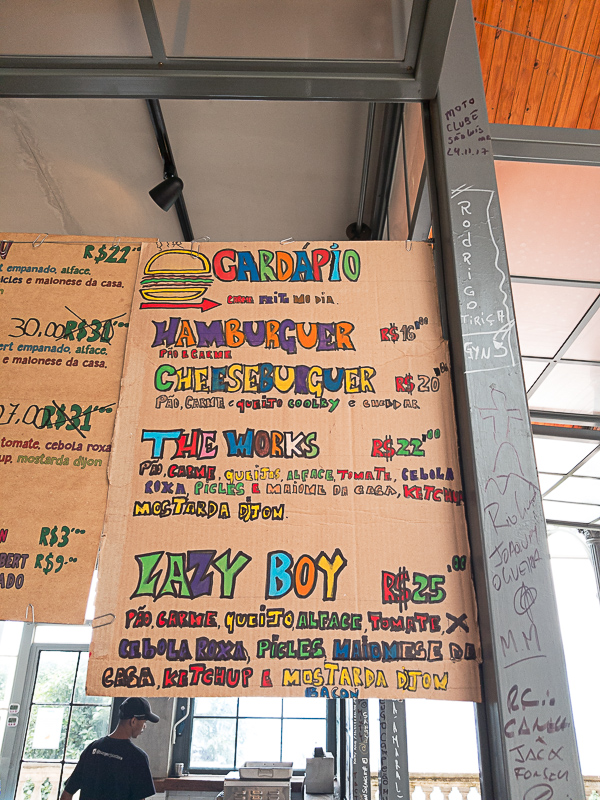 R$22
empanado, alface,
picles e maionese da casa.
30.00 R$31
empanado, alface,
e maionese da casa.
R$31
tomate, cebola roxa
mostarda dijon
R$3
R$9
CARDÁPIO
FEITO NO DIA.
HAMBURGUER R$16,00
PÃO E CARNE
CHEESEBURGUER R$20,00
PÃO, CARNE e QUEIJO COOLBY e CHEDDAR
THE WORKS R$22,00
PÃO, CARNE, QUEIJOS, ALFACE, TOMATE, CEBOLA
ROXA, PICLES E MAIONE DA CASA, KETCHUP
MOSTARDA DJON.
LAZY BOY R$25,00
PÃO, CARNE, QUEIJO ALFACE, TOMATE,
CEBOLA ROXA, PICLES, MAIOMESE DA
CASA, KETCHUP E MOSTARDA DJON
BACON
MOTO
CLUBE
24.11.17
RODRIGO
TIRIÇA
JOAQUIM
M.M
JACK